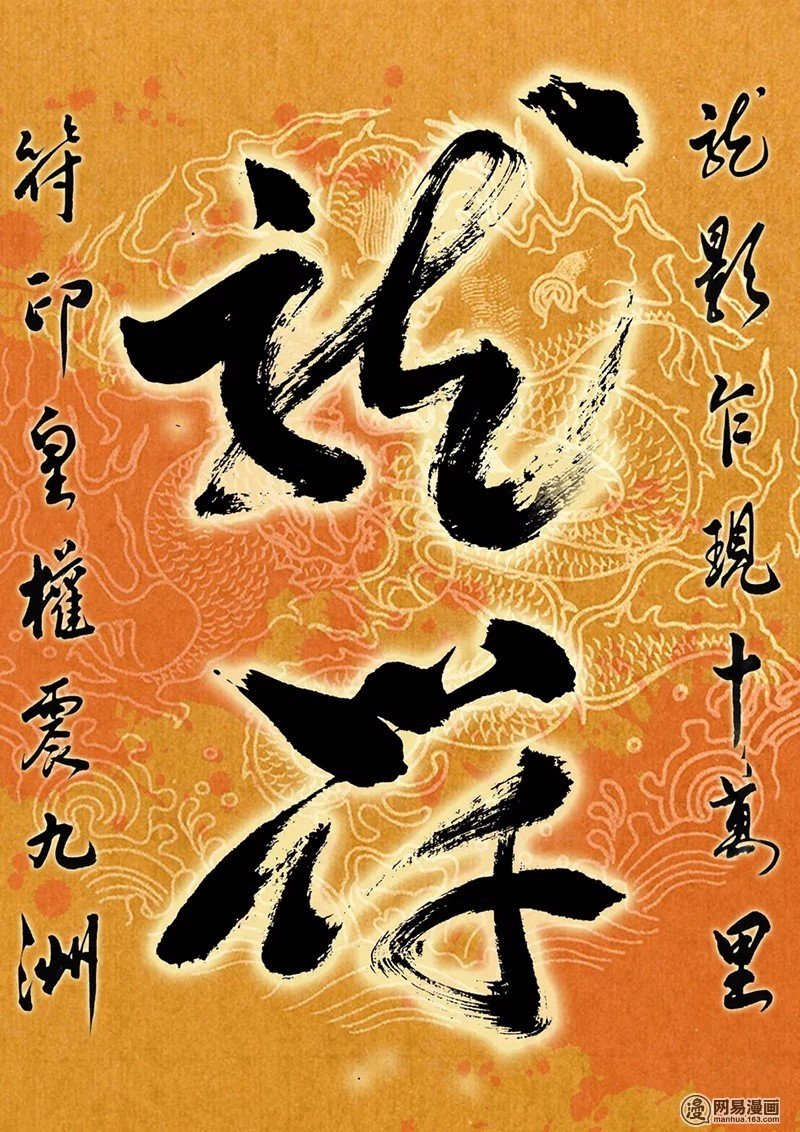 龍影乍現十萬里
龍符
符印皇權震九洲
漫
网易漫画
manhua.163.com